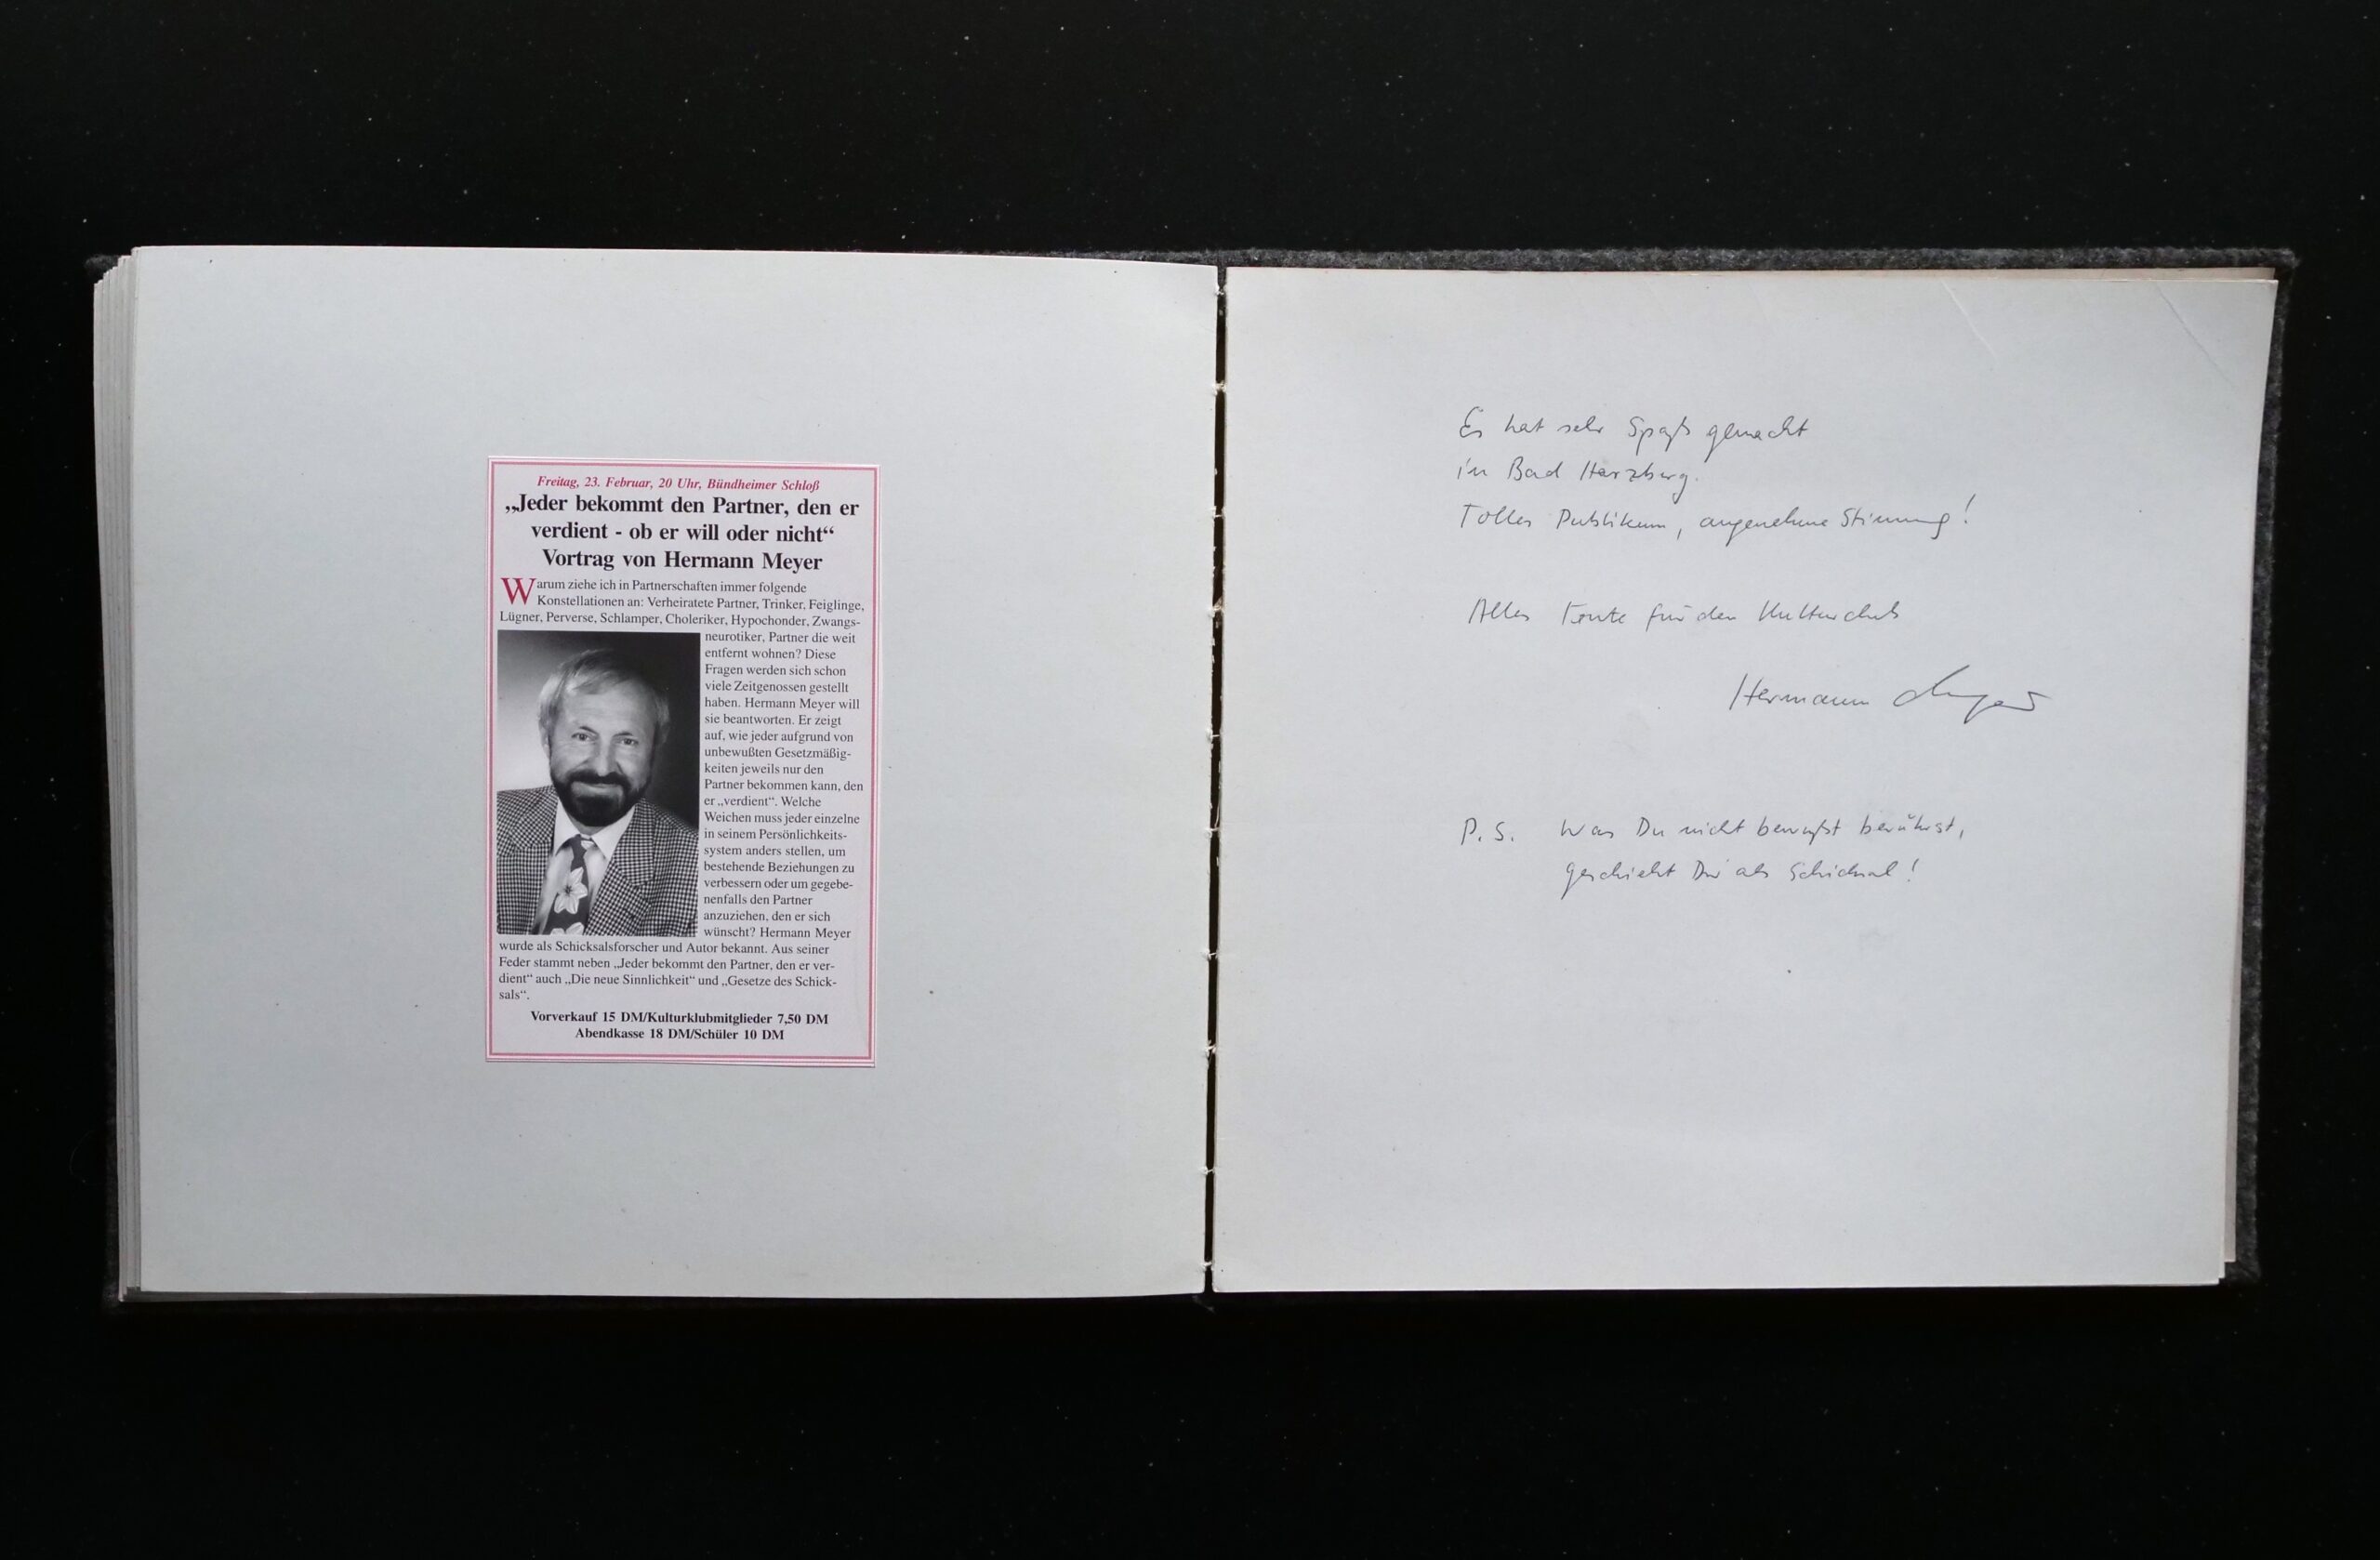 Freitag, 23. Februar, 20 Uhr, Bündheimer Schloß
„Jeder bekommt den Partner, den er
verdient - ob er will oder nicht“
Vortrag von Hermann Meyer
Warum ziehe ich in Partnerschaften immer folgende
Konstellationen an: Verheiratete Partner, Trinker, Feiglinge,
Lügner, Perverse, Schlamper, Choleriker, Hypochonder, Zwangs-
neurotiker, Partner die weit
entfernt wohnen? Diese
Fragen werden sich schon
viele Zeitgenossen gestellt
haben. Hermann Meyer will
sie beantworten. Er zeigt
auf, wie jeder aufgrund von
unbewußten Gesetzmäßig-
keiten jeweils nur den
Partner bekommen kann, den
er „verdient“. Welche
Weichen muss jeder einzelne
in seinem Persönlichkeits-
system anders stellen, um
bestehende Beziehungen zu
verbessern oder um gegebe-
nenfalls den Partner
anzuziehen, den er sich
wünscht? Hermann Meyer
wurde als Schicksalsforscher und Autor bekannt. Aus seiner
Feder stammt neben „Jeder bekommt den Partner, den er ver-
dient“ auch „Die neue Sinnlichkeit“ und „Gesetze des Schick-
sals“.
Vorverkauf 15 DM/Kulturklubmitglieder 7,50 DM
Abendkasse 18 DM/Schüler 10 DM
Es hat sehr Spaß gemacht
in Bad Harzburg.
Tolles Publikum, angenehme Stimmung!
Alles Gute für den Kulturclub
Hermann Meyer
P.S. Was Du nicht bewußt berührst,
geschieht Dir als Schicksal!